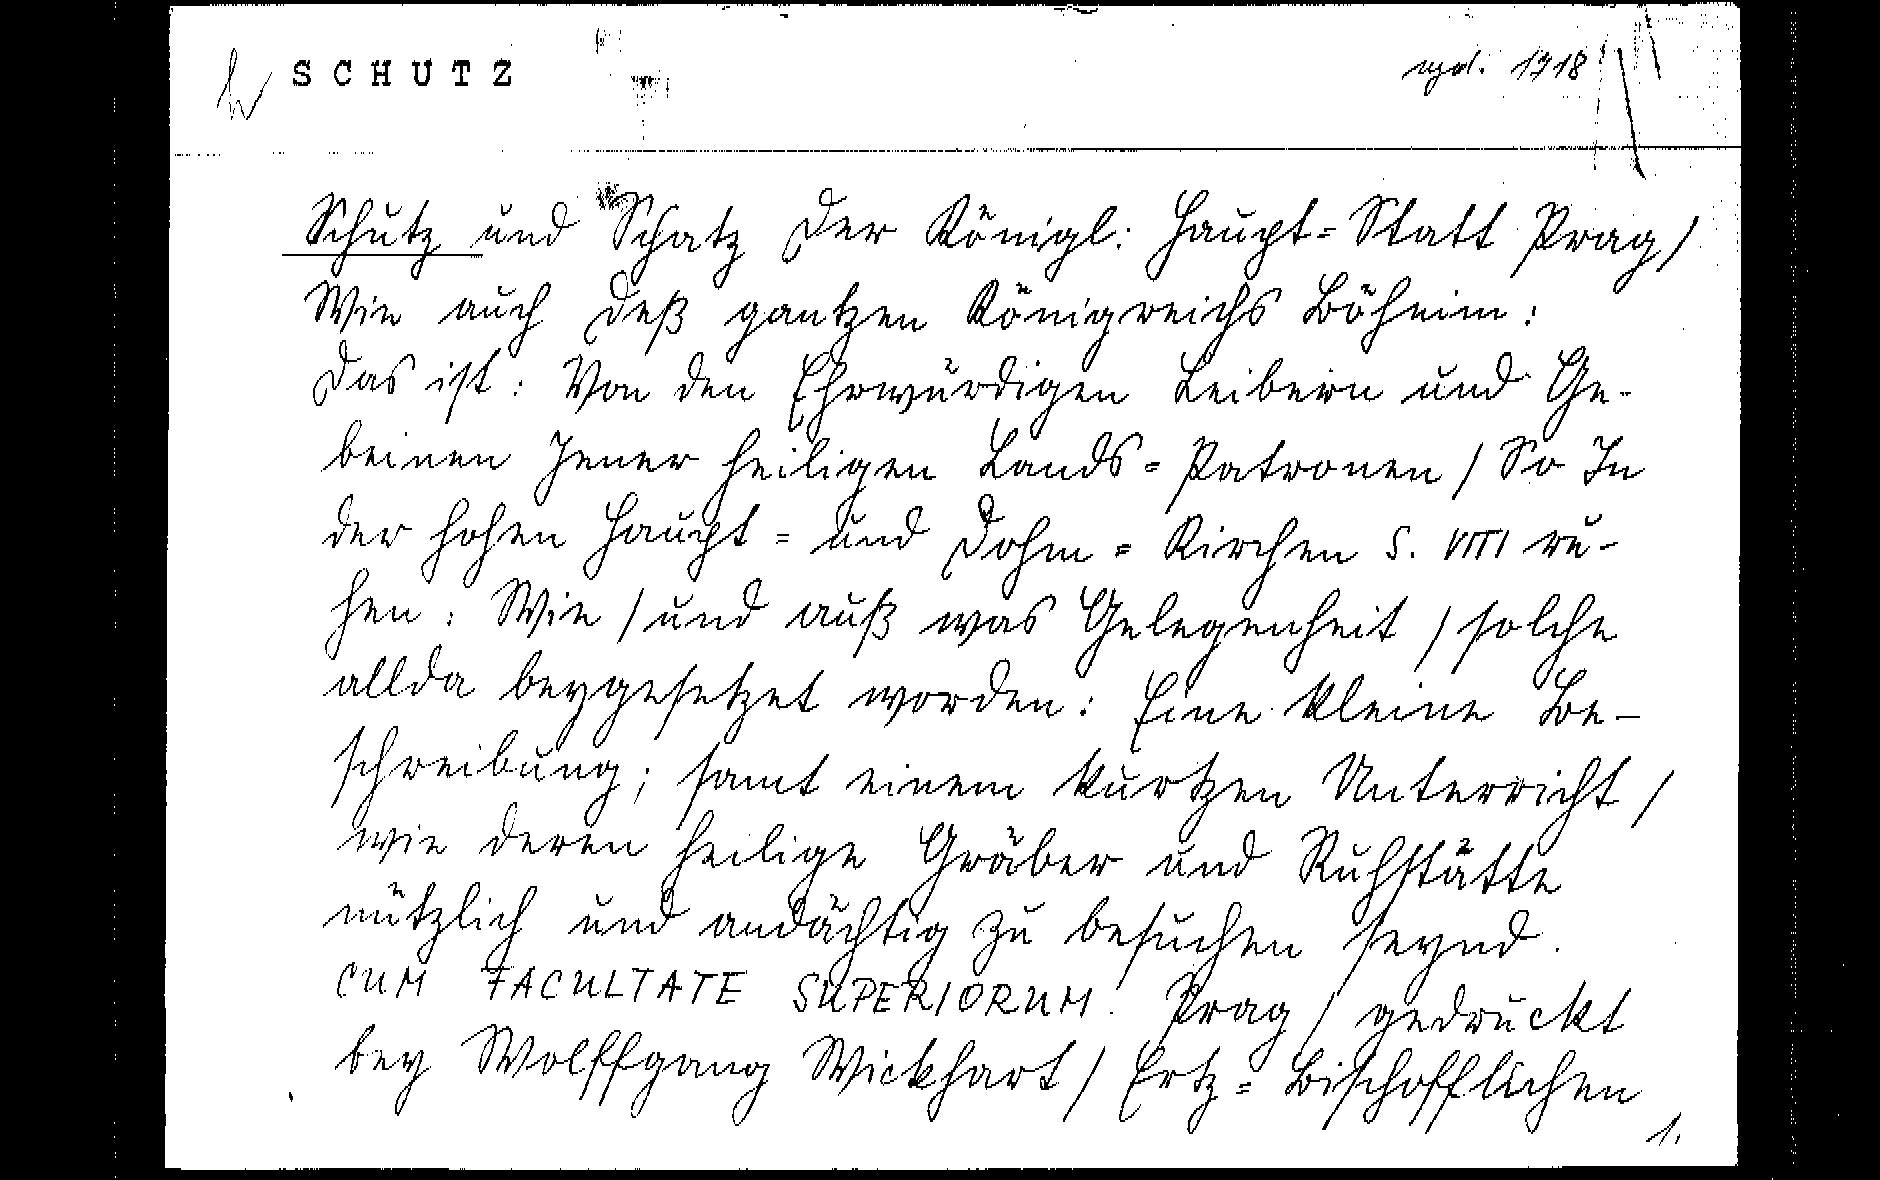 SCHUTZ
vyd. 1718
Schutz und Schatz der Königl: Haupt=Statt Prag/
Wie auch deß gantzen Königreichs Böheim:
Das ist: Von den Ehrwürdigen Leibern und Ge-
beinen Jener heiligen Lands=Patronen / So In
der hohen Haupt= und Dohm=Kirchen S. VITI ru-
hen: Wie / und auß was Gelegenheit / solche
allda beygesetzet worden: Eine kleine Be-
schreibung; samt einem kurtzen Unterricht /
wie deren heilige Gräber und Ruhstätte
nützlich und andächtig zu besuchen seynd.
CUM FACULTATE SUPERIORUM. Prag / gedruckt
bey Wolffgang Wickhart / Ertz=Bischofflichen
1.